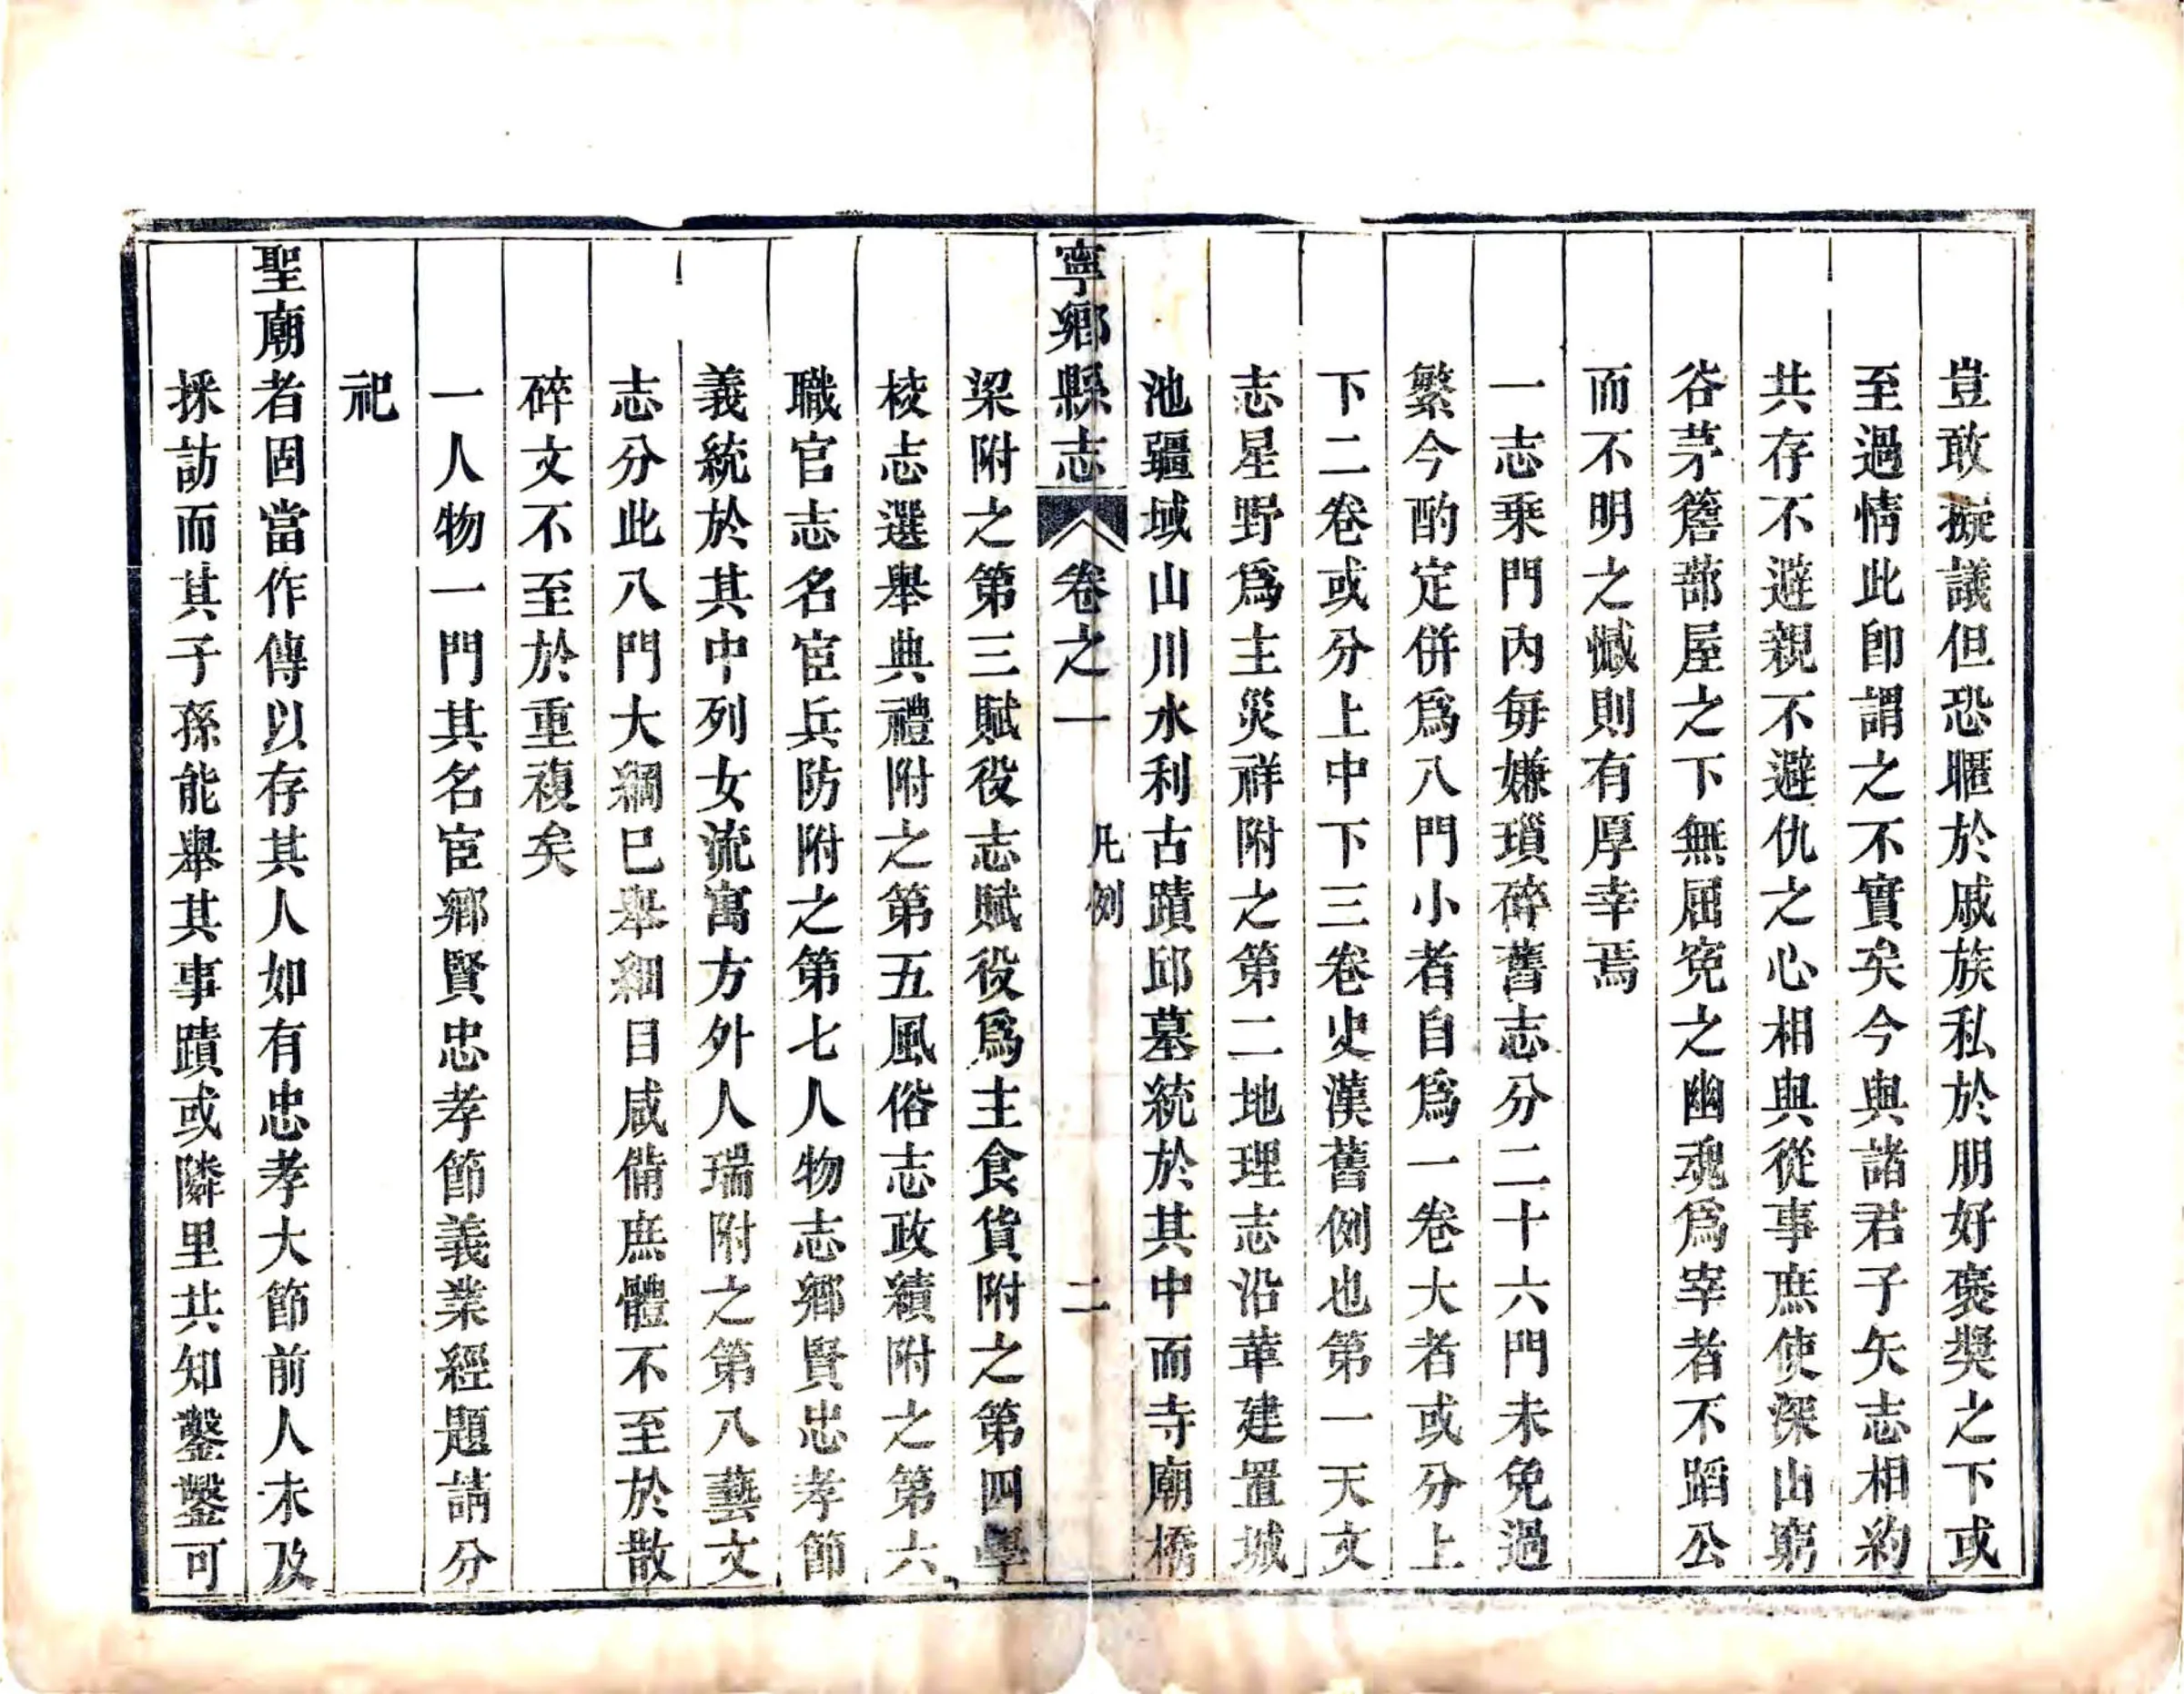 豈敢擬議但恐暱於戚族私於朋好褒奬之下或
至過情此卽謂之不實矣今與諸君子矢志相約
共存不避親不避仇之心相與從事庶使深山窮
谷茅簷蔀屋之下無屈寃之幽魂爲宰者不蹈公
而不明之憾則有厚幸焉
一志乘門內每嫌瑣碎舊志分二十六門未免過
繁今酌定併爲八門小者自爲一卷大者或分上
下二卷或分上中下三卷史漢舊例也第一天文
志星野爲主災祥附之第二地理志沿革建置城
池疆域山川水利古蹟邱墓統於其中而寺廟橋
寧鄉縣志 卷之一 凡例 二
梁附之第三賦役志賦役爲主食貨附之第四學
校志選舉典禮附之第五風俗志政績附之第六
職官志名宦兵防附之第七人物志鄉賢忠孝節
義統於其中列女流寓方外人瑞附之第八藝文
志分此八門大綱已舉細目咸備庶體不至於散
碎文不至於重複矣
一人物一門其名宦鄉賢忠孝節義業經題請分
祀
聖廟者固當作傳以存其人如有忠孝大節前人未及
採訪而其子孫能舉其事蹟或隣里共知鑿鑿可